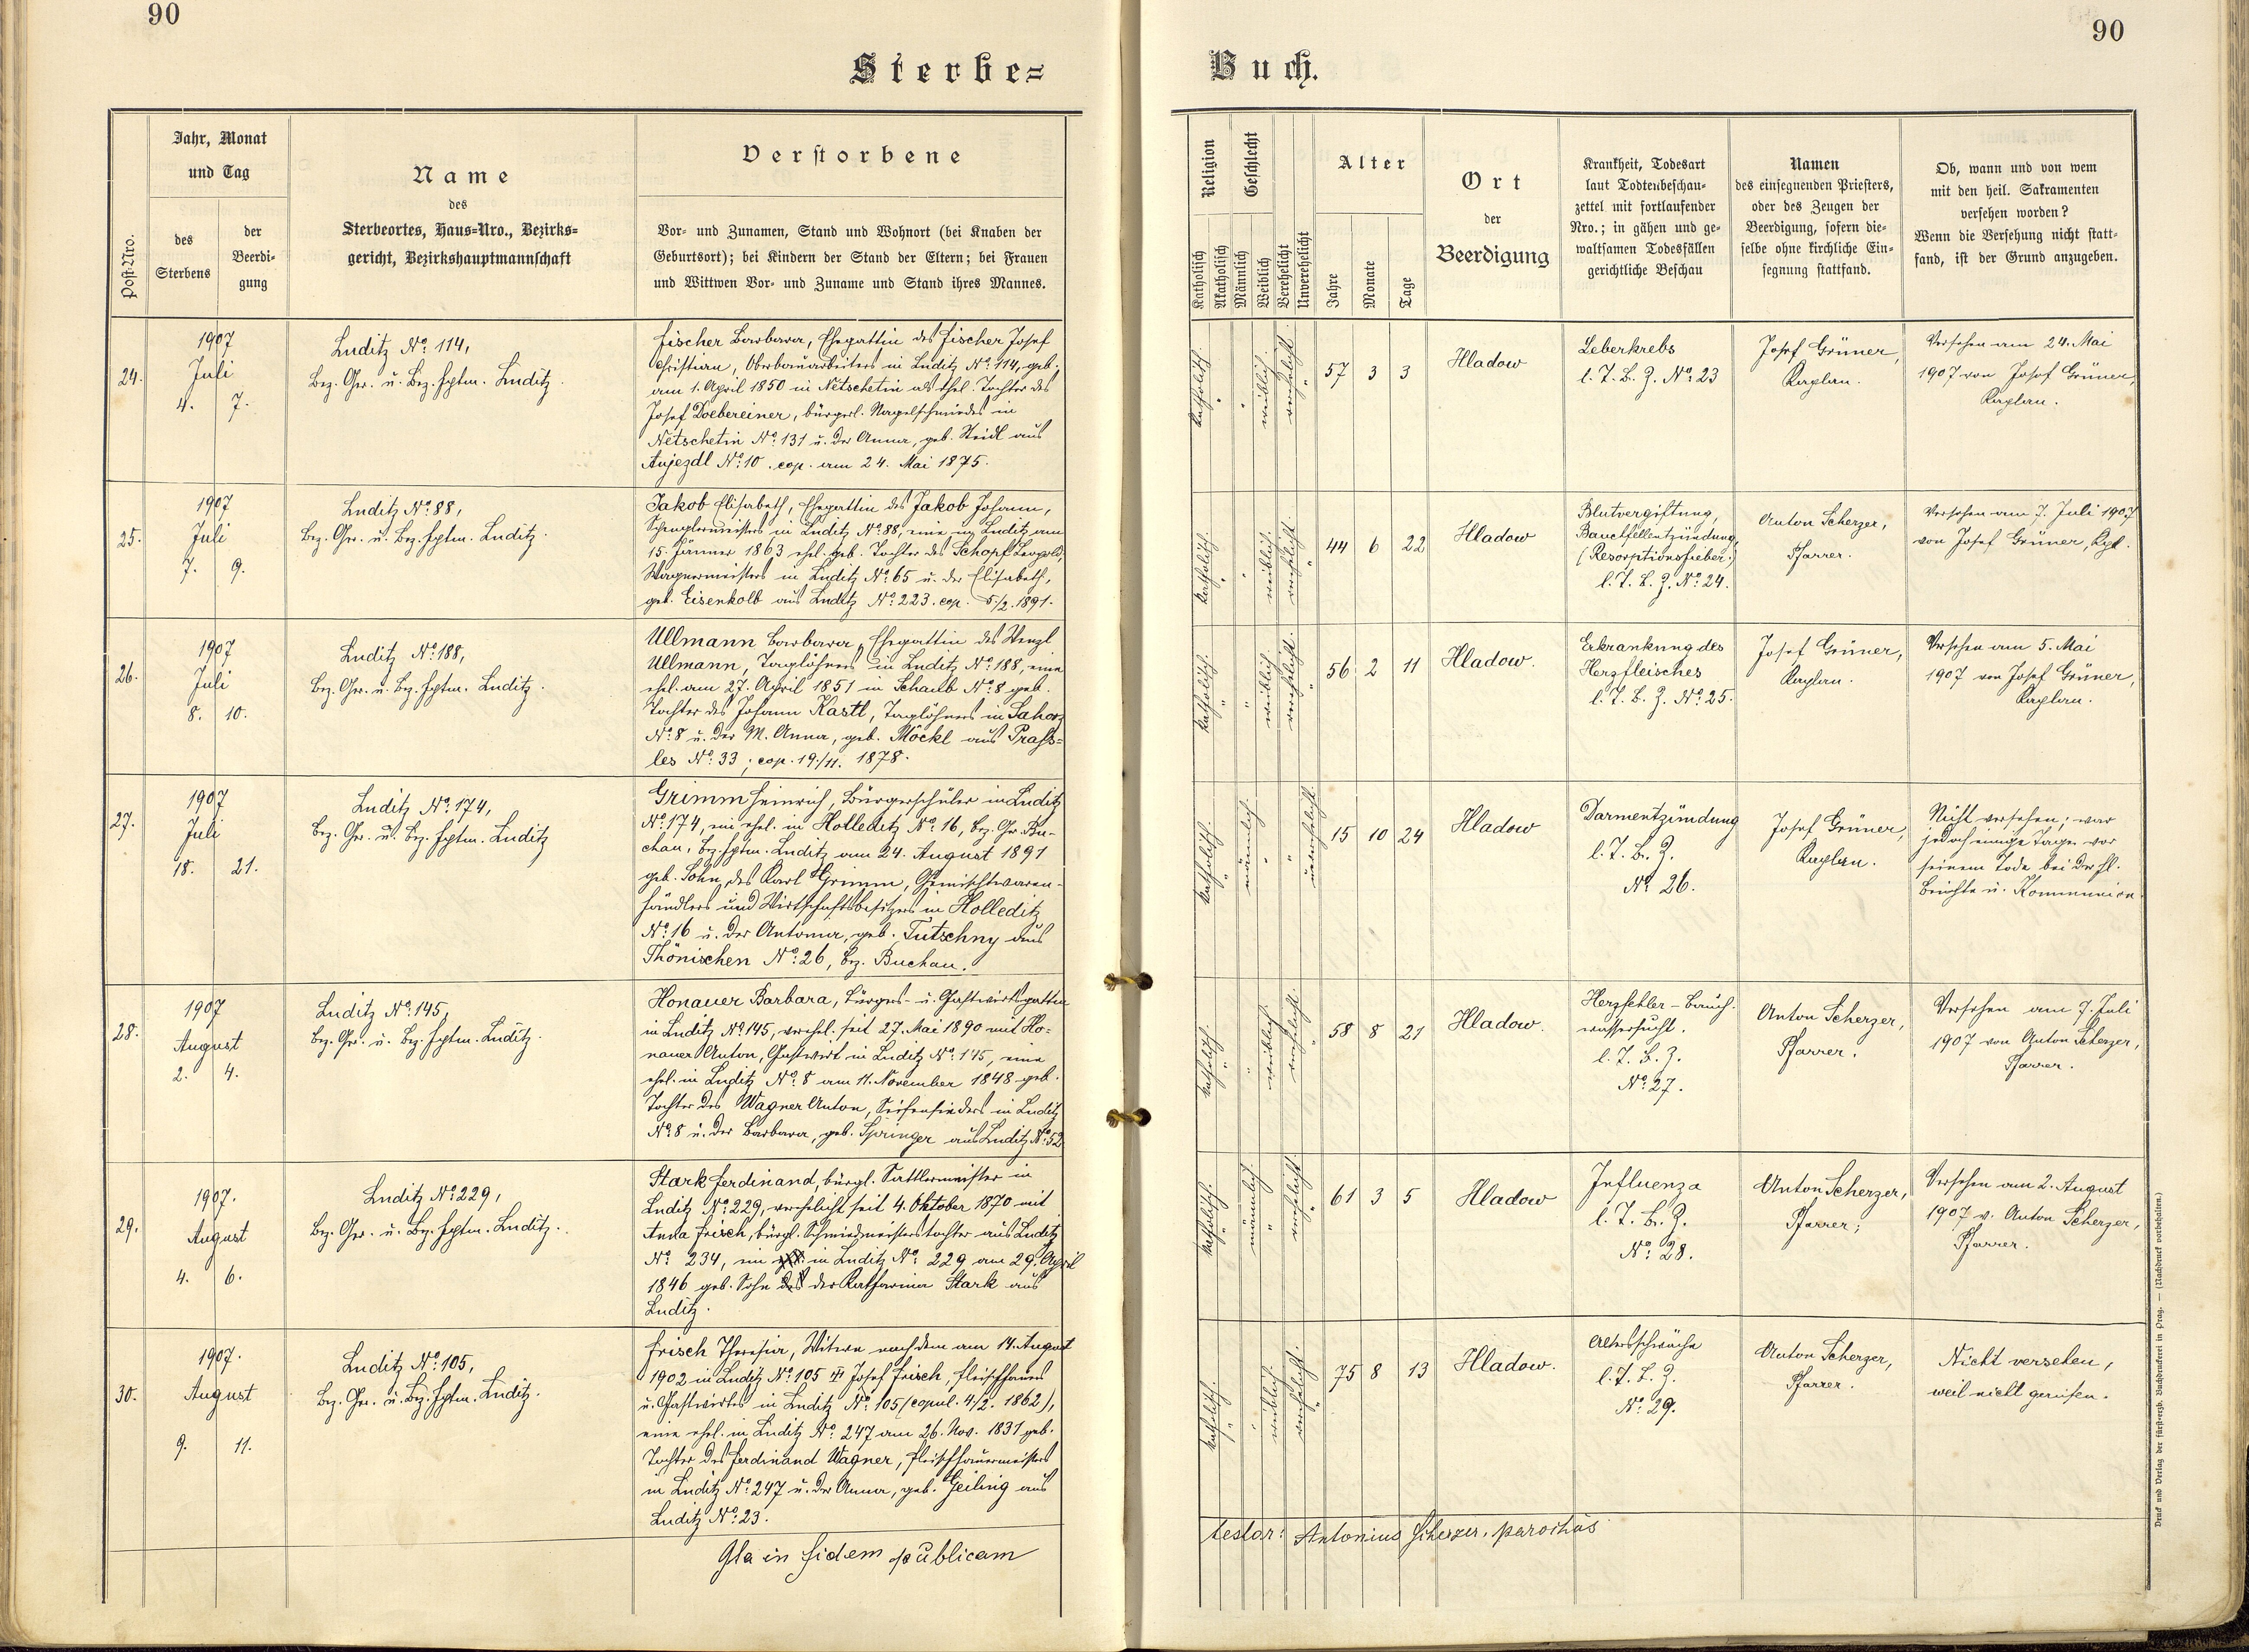 90
90
Sterbe=
Buch.
Post-Nro.
Jahr, Monat
und Tag
des
Sterbens
der
Beerdi-
gung
Name
des
Sterbeortes, Haus-Nro., Bezirks-
gericht, Bezirkshauptmannschaft
Verstorbene
Vor- und Zunamen, Stand und Wohnort (bei Knaben der
Geburtsort); bei Kindern der Stand der Eltern; bei Frauen
und Wittwen Vor- und Zuname und Stand ihres Mannes.
Religion
Katholisch
Akatholisch
Geschlecht
Männlich
Weiblich
Verehelicht
Unverehelicht
Alter
Jahre
Monate
Tage
Ort
der
Beerdigung
Krankheit, Todesart
laut Todtenbeschau-
zettel mit fortlaufender
Nro.; in gähen und ge-
waltsamen Todesfällen
gerichtliche Beschau
Namen
des einsegnenden Priesters,
oder des Zeugen der
Beerdigung, sofern die-
selbe ohne kirchliche Ein-
segnung stattfand.
Ob, wann und von wem
mit den heil. Sakramenten
versehen worden?
Wenn die Versehung nicht statt-
fand, ist der Grund anzugeben.
24.
1907
Juli
4. 7.
Luditz No. 114,
Bez. Ger. u. Bez. Hptm. Luditz.
Fischer Barbara, Ehegattin des Fischer Josef
Christian, Oberbauarbeiters in Luditz No. 114, geb.
am 1. April 1850 in Netschetin als ehel. Tochter des
Josef Doebereiner, bürgerl. Nagelschmiedes in
Netschetin No. 131 u. der Anna, geb. Steidl aus
Aujezdl No. 10. cop. am 24. Mai 1875.
katholisch.
weiblich.
verehelicht.
57 3 3
Hladow
Leberkrebs
l. T. B. Z. No. 23
Josef Grüner,
Kaplan.
Versehen am 24. Mai
1907 von Josef Grüner,
Kaplan.
25.
1907
Juli
7. 9.
Luditz No. 88,
Bez. Ger. u. Bez. Hptm. Luditz.
Jakob Elisabeth, Ehegattin des Jakob Johann,
Spenglermeisters in Luditz No. 88, eine in Luditz am
15. Jänner 1863 ehel. geb. Tochter des Schopf Leopold,
Wagnermeisters in Luditz No. 65 u. der Elisabeth,
geb. Eisenkolb aus Luditz No. 223. cop. 5./2. 1891.
katholisch.
weiblich.
verehelicht.
44 6 22
Hladow
Blutvergiftung,
Bauchfellentzündung,
(Resorptionsfieber)
l. T. B. Z. No. 24.
Anton Scherzer,
Pfarrer.
Versehen am 7. Juli 1907
von Josef Grüner, Kpl.
26.
1907
Juli
8. 10.
Luditz No. 188,
Bez. Ger. u. Bez. Hptm. Luditz.
Ullmann Barbara, Ehegattin des Wenzl
Ullmann, Taglöhners in Luditz No. 188, eine
ehel. am 27. April 1851 in Schaub No. 8 geb.
Tochter des Johann Kastl, Taglöhners in Sahorz
No. 8 u. der M. Anna, geb. Möckl aus Prass=
les No. 33; cop. 19./11. 1878.
katholisch.
weiblich.
verehelicht.
56 2 11
Hladow.
Erkrankung des
Herzfleisches
l. T. B. Z. No. 25.
Josef Grüner,
Kaplan.
Versehen am 5. Mai
1907 von Josef Grüner,
Kaplan.
27.
1907
Juli
18. 21.
Luditz No. 174,
Bez. Ger. u. Bez. Hptm. Luditz
Grimm Heinrich, Bürgerschüler in Luditz
No. 174, ein ehel. in Holleditz No. 16, Bez. Ger. Bu-
chau, Bez. Hptm. Luditz am 24. August 1891
geb. Sohn des Karl Grimm, Gemischtwaren-
händlers und Wirtschaftsbesitzers in Holleditz
No. 16 u. der Antonia, geb. Tutschny aus
Thönischen No. 26, Bez. Buchau.
katholisch.
männlich.
unverehelicht.
15 10 24
Hladow
Darmentzündung
l. T. B. Z.
No. 26.
Josef Grüner,
Kaplan.
Nicht versehen; war
jedoch einige Tage vor
seinem Tode bei der hl.
Beichte u. Kommunion.
28.
1907
August
2. 4.
Luditz No. 145,
Bez. Ger. u. Bez. Hptm. Luditz.
Honauer Barbara, Bürgers- u. Gastwirtsgattin
in Luditz No. 145, verehel. seit 27. Mai 1890 mit Ho=
nauer Anton, Gastwirt in Luditz No. 145, eine
ehel. in Luditz No. 8 am 11. November 1848 geb.
Tochter des Wagner Anton, Seifensieders in Luditz
No. 8 u. der Barbara, geb. Springer aus Luditz No. 52
katholisch.
weiblich.
verehelicht.
58 8 21
Hladow.
Herzfehler - Bauch-
wassersucht.
l. T. B. Z.
No. 27.
Anton Scherzer,
Pfarrer.
Versehen am 7. Juli
1907 von Anton Scherzer,
Pfarrer.
29.
1907.
August
4. 6.
Luditz No. 229,
Bez. Ger. u. Bez. Hptm. Luditz.
Stark Ferdinand, bürgl. Sattlermeister in
Luditz No. 229, verehelicht seit 4. Oktober 1870 mit
Anna Frisch, bürgl. Schmiedmeisterstochter aus Luditz
No. 234, ein in Luditz No. 229 am 29. April
1846 geb. Sohn der Katharina Stark aus
Luditz.
katholisch.
männlich.
verehelicht.
61 3 5
Hladow
Influenza
l. T. B. Z.
No. 28.
Anton Scherzer,
Pfarrer;
Versehen am 2. August
1907 v. Anton Scherzer,
Pfarrer.
30.
1907.
August
9. 11.
Luditz No. 105,
Bez. Ger. u. Bez. Hptm. Luditz.
Frisch Theresia, Witwe nach dem am 14. August
1902 in Luditz No. 105 Josef Frisch, Fleischhauers
u. Gastwirtes in Luditz No. 105 (copul. 4./2. 1862),
eine ehel. in Luditz No. 247 am 26. Nov. 1831 geb.
Tochter des Ferdinand Wagner, Fleischhauermeisters
in Luditz No. 247 u. der Anna, geb. Geiling aus
Luditz No. 23.
katholisch.
weiblich.
verehelicht.
75 8 13
Hladow.
Altersschwäche
l. T. B. Z.
No. 29.
Anton Scherzer,
Pfarrer.
Nicht versehen,
weil nicht gerufen.
in fidem publicam
testor: Antonius Scherzer, parochus
Druck und Verlag der fürsterzb. Buchdruckerei in Prag. — (Nachdruck vorbehalten.)